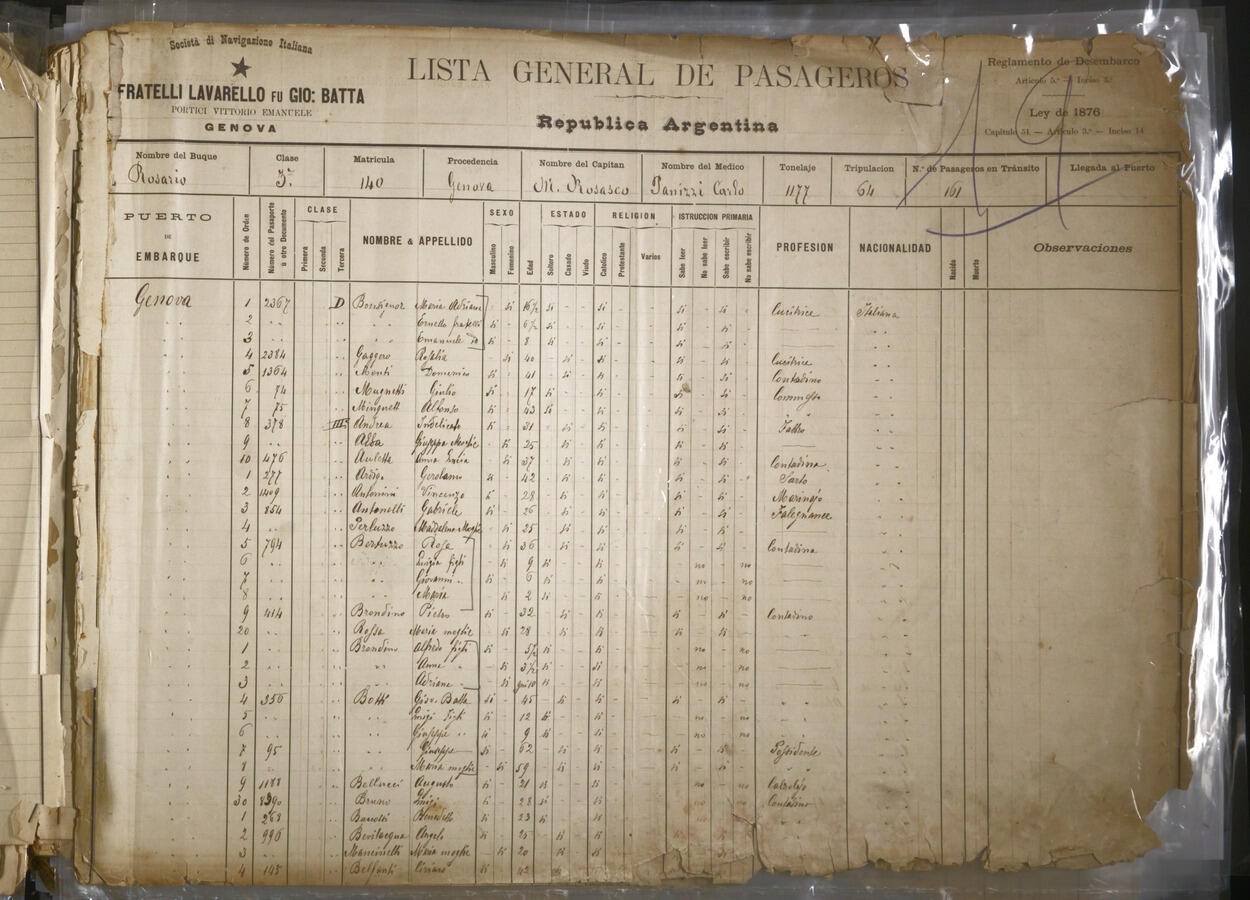 Società di Navigazione Italiana
FRATELLI LAVARELLO FU GIO: BATTA
PORTICI VITTORIO EMANUELE
GENOVA
LISTA GENERAL DE PASAGEROS
Republica Argentina
Reglamento de Desembarco
Articulo 5.º — Inciso 3.º
Ley de 1876
Capitulo 51. — Articulo 3.º — Inciso 14
19
Nombre del Buque Clase Matricula Procedencia Nombre del Capitan Nombre del Medico Tonelaje Tripulacion N.º de Pasageros en Tránsito Llegada al Puerto
Rosario 3.ª 140 Genova M. Rosasco Panizzi Carlo 1177 64 161
PUERTO DE EMBARQUE
Número de Orden
Número del Pasaporte u otro Documento
CLASE
Primera Segunda Tercera
NOMBRE & APPELLIDO
SEXO
Masculino Femenino
Edad
ESTADO
Soltero Casado Viudo
RELIGION
Catolico Protestante Varios
ISTRUCCION PRIMARIA
Sabe leer No sabe leer Sabe escribir No sabe escribir
PROFESION
NACIONALIDAD
Nacido Muerto
Observaciones
Genova 1 2367 D Maria si 16½ si - - si - si - si - Cucitrice Italiana
2 " " Ernesto fratelli si - 6½ si
3 " " Emanuele si - 8 si
4 2384 Gaggero Rosalia - si 40 - si - si - si - si - Cucitrice
5 1364 Monti Domenico si - 41 - si - si - si - si - Contadino
6 74 Giulio si - 17 si - - si - si - si -
7 75 Alfonso si - 43 si - - si - si - si -
8 378 III Andrea Indelicato si - 31 - si - si - si - si -
9 " " Alba Giuseppa Moglie - si 25 - si - si - si - si -
10 476 Auletta Anna - si 37 - si - si - si - si - Contadina
1 277 Gerolamo si - 42 - si - si - si - si - Sarto
2 1409 Antonini Vincenzo si - 28 - si - si - si - si - Marinajo
3 854 Antonelli Gabriele si - 26 - si - si - si - si - Falegname
4 " " Perluzzo Maddalena Moglie - si 25 - si - si - si - si -
5 794 Bertuzzo Rosa - si 36 - si - si - si - si - Contadina
6 " " Luigia figli - si 9 si - - si - - no - no
7 " " Giovanni " si - 6 si - - si - - no - no
8 " " Maria - si 2 si - - si - - no - no
9 414 Brondino Pietro si - 32 - si - si - si - si - Contadino
20 Rossa Maria moglie - si 28 - si - si - si - si -
1 Brondino Alfredo figli si - 5½ si - - si - - no - no
2 " " Anna " - si 3½ si - - si - - no - no
3 " " Adriana " - si si - - si - - no - no
4 356 Botti Giov. Batta si - 45 - si - si
5 " " Luigi figli si - 12 si - - si - - no - no
6 " " Giuseppe " si - 9 si - - si - - no - no
7 95 " " Giuseppe si - 62 - si - si - si - si - Possidente
8 " " Maria moglie - si 59 - si - si
9 1188 Bellucci Augusto si - 21 si - - si - - no - no Calzolajo
30 Bruno Luigi si - 28 si - - si Contadino
1 263 Benedetto si - 23 si - - si
2 996 Bevilacqua Angelo si - 25 - si - si
3 " " Mancinelli Maria moglie - si 20 - si - si
4 145 Belfanti si - 42